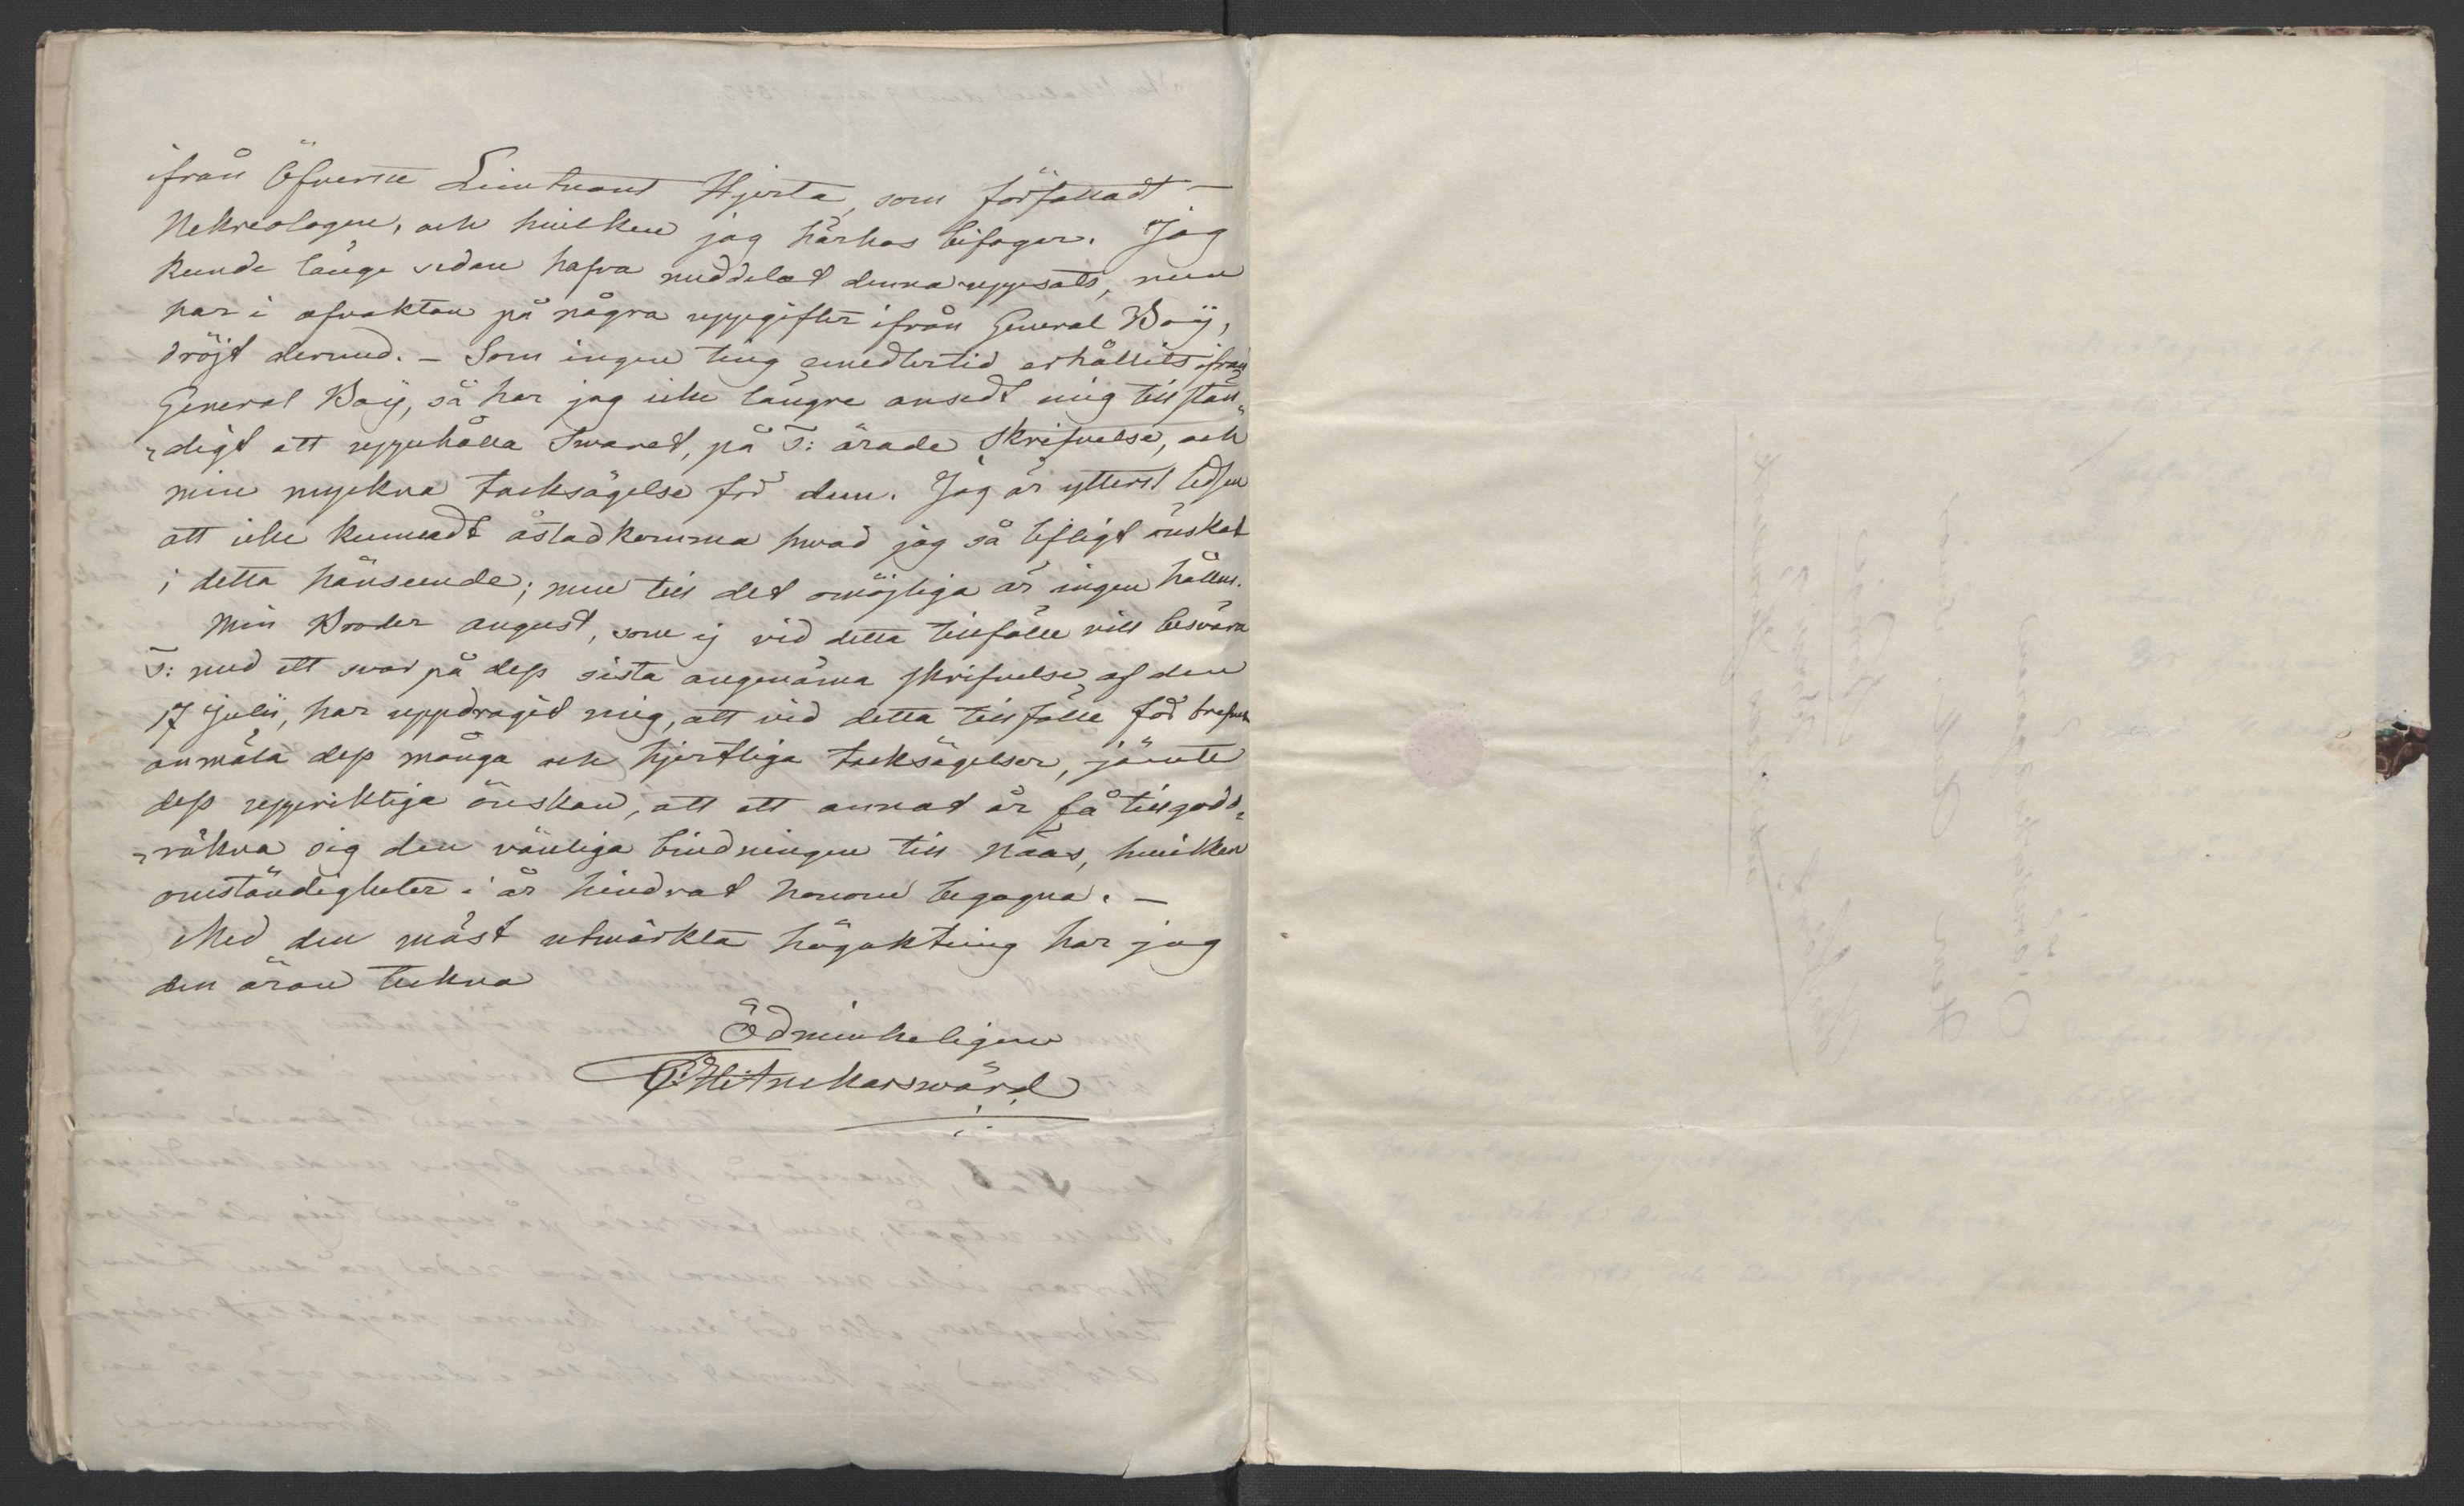 ifrån Öfverste Lieutnant Hjerta, som författadt
Nekreologen, och hvilken jag härhos bifogar. Jag
kunde länge sedan hafva meddelat denna uppsats, men
har i afvaktan på några uppgifter ifrån General Boij,
dröjt dermed. – Som ingen ting emedlertid erhållits ifrån
General Boij, så har jag icke längre ansedt mig tillstän„
„digt att uppehålla Swaret, på T: ärade skrifvelse, och
min myckna tacksägelse för den. Jag är ytterst ledsen
att icke kunnadt åstadkomma hwad jag så lifligt önskat
i detta hänseende; men till det omöjliga är ingen hållen.
Min Broder August, som ej vid detta tillfälle vill besvära
T: med ett svar på dess sista angenäma skrifvelse af den
17 Julii, har uppdragit mig, att vid detta tillfälle för
anmäla dess många och hjertliga tacksägelser, jämte
dess uppriktiga önskan, att ett annat år få tillgodo„
„räkna sig den vänliga bindningen till Nääs, hvilken
omständigheter i år hindrat honom begagna. –
Med den mäst utmärkta högaktning har jag
den äran teckna
Ödmjukeligen
Anckarswärd